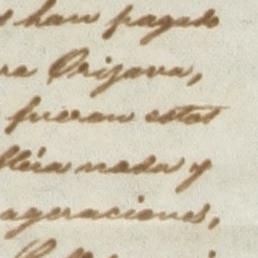 han pagado
ra Orijava,
fueran estas
nada y
ageraciones,